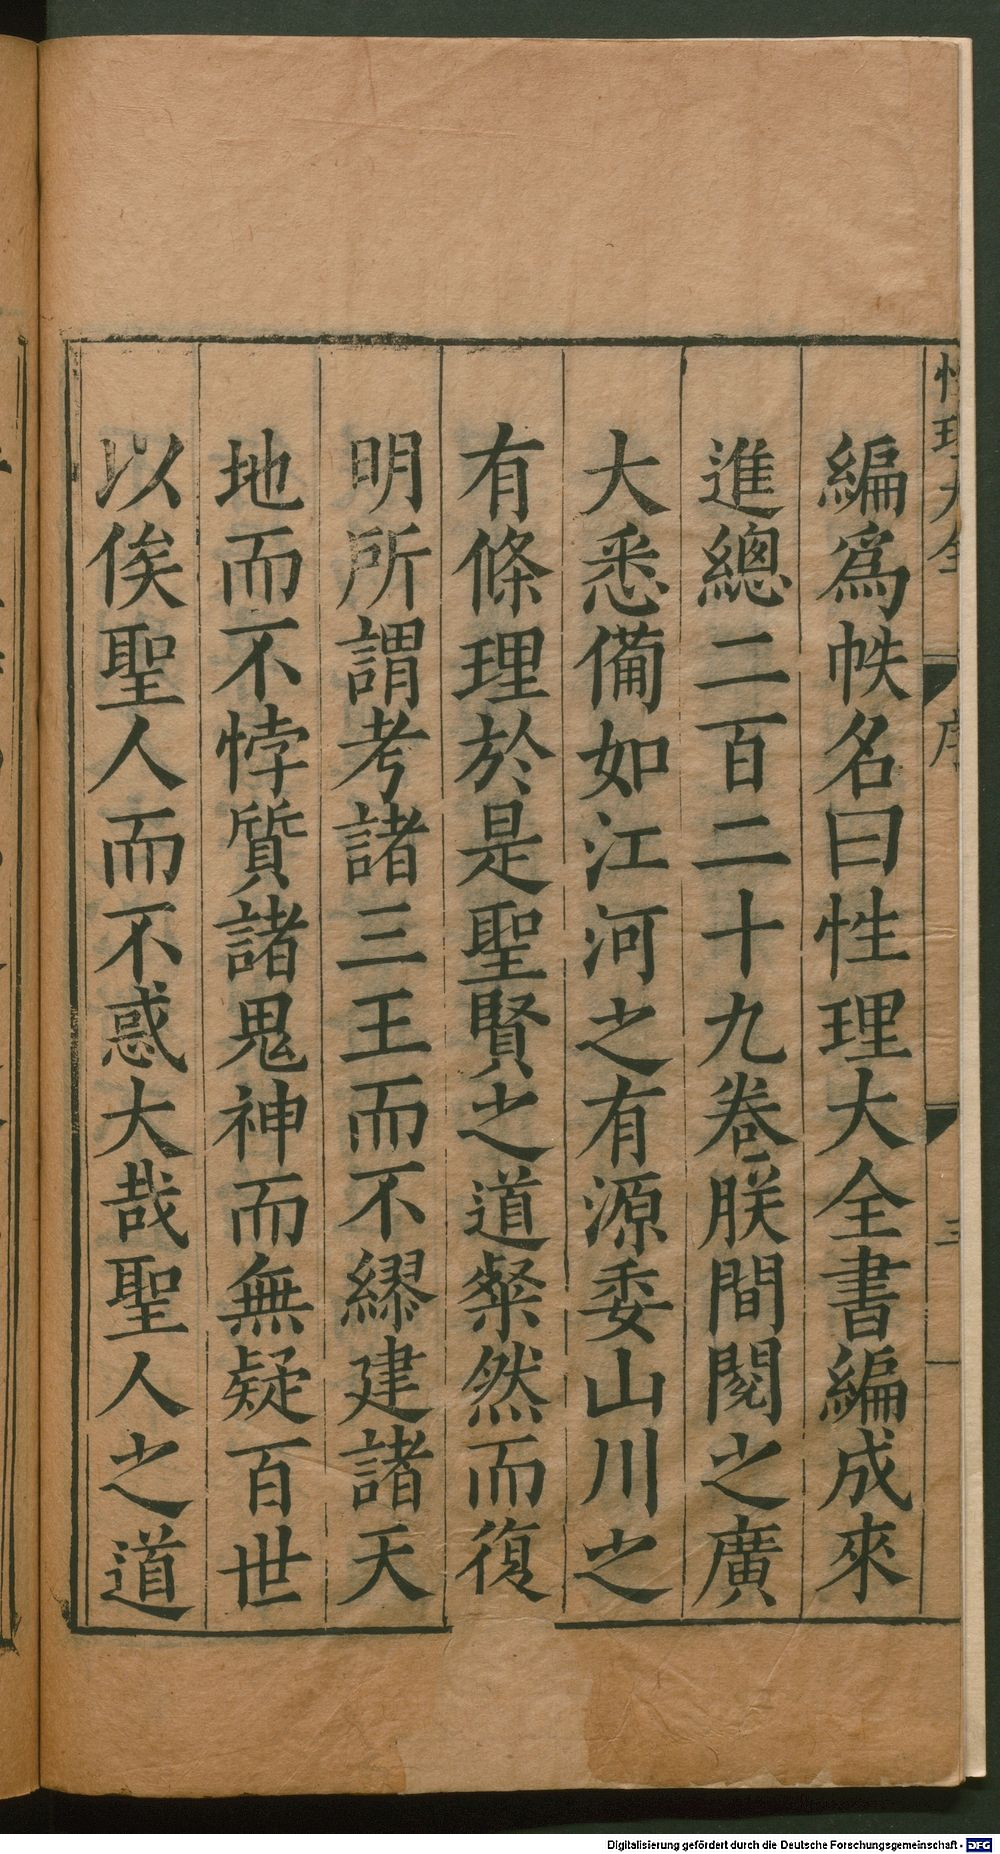 性理大全 序 三
編爲帙名曰性理大全書編成來
進總二百二十九卷朕間閱之廣
大悉備如江河之有源委山川之
有條理於是聖賢之道粲然而復
明所謂考諸三王而不繆建諸天
地而不悖質諸鬼神而無疑百世
以俟聖人而不惑大哉聖人之道
Digitalisierung gefördert durch die Deutsche Forschungsgemeinschaft - DFG